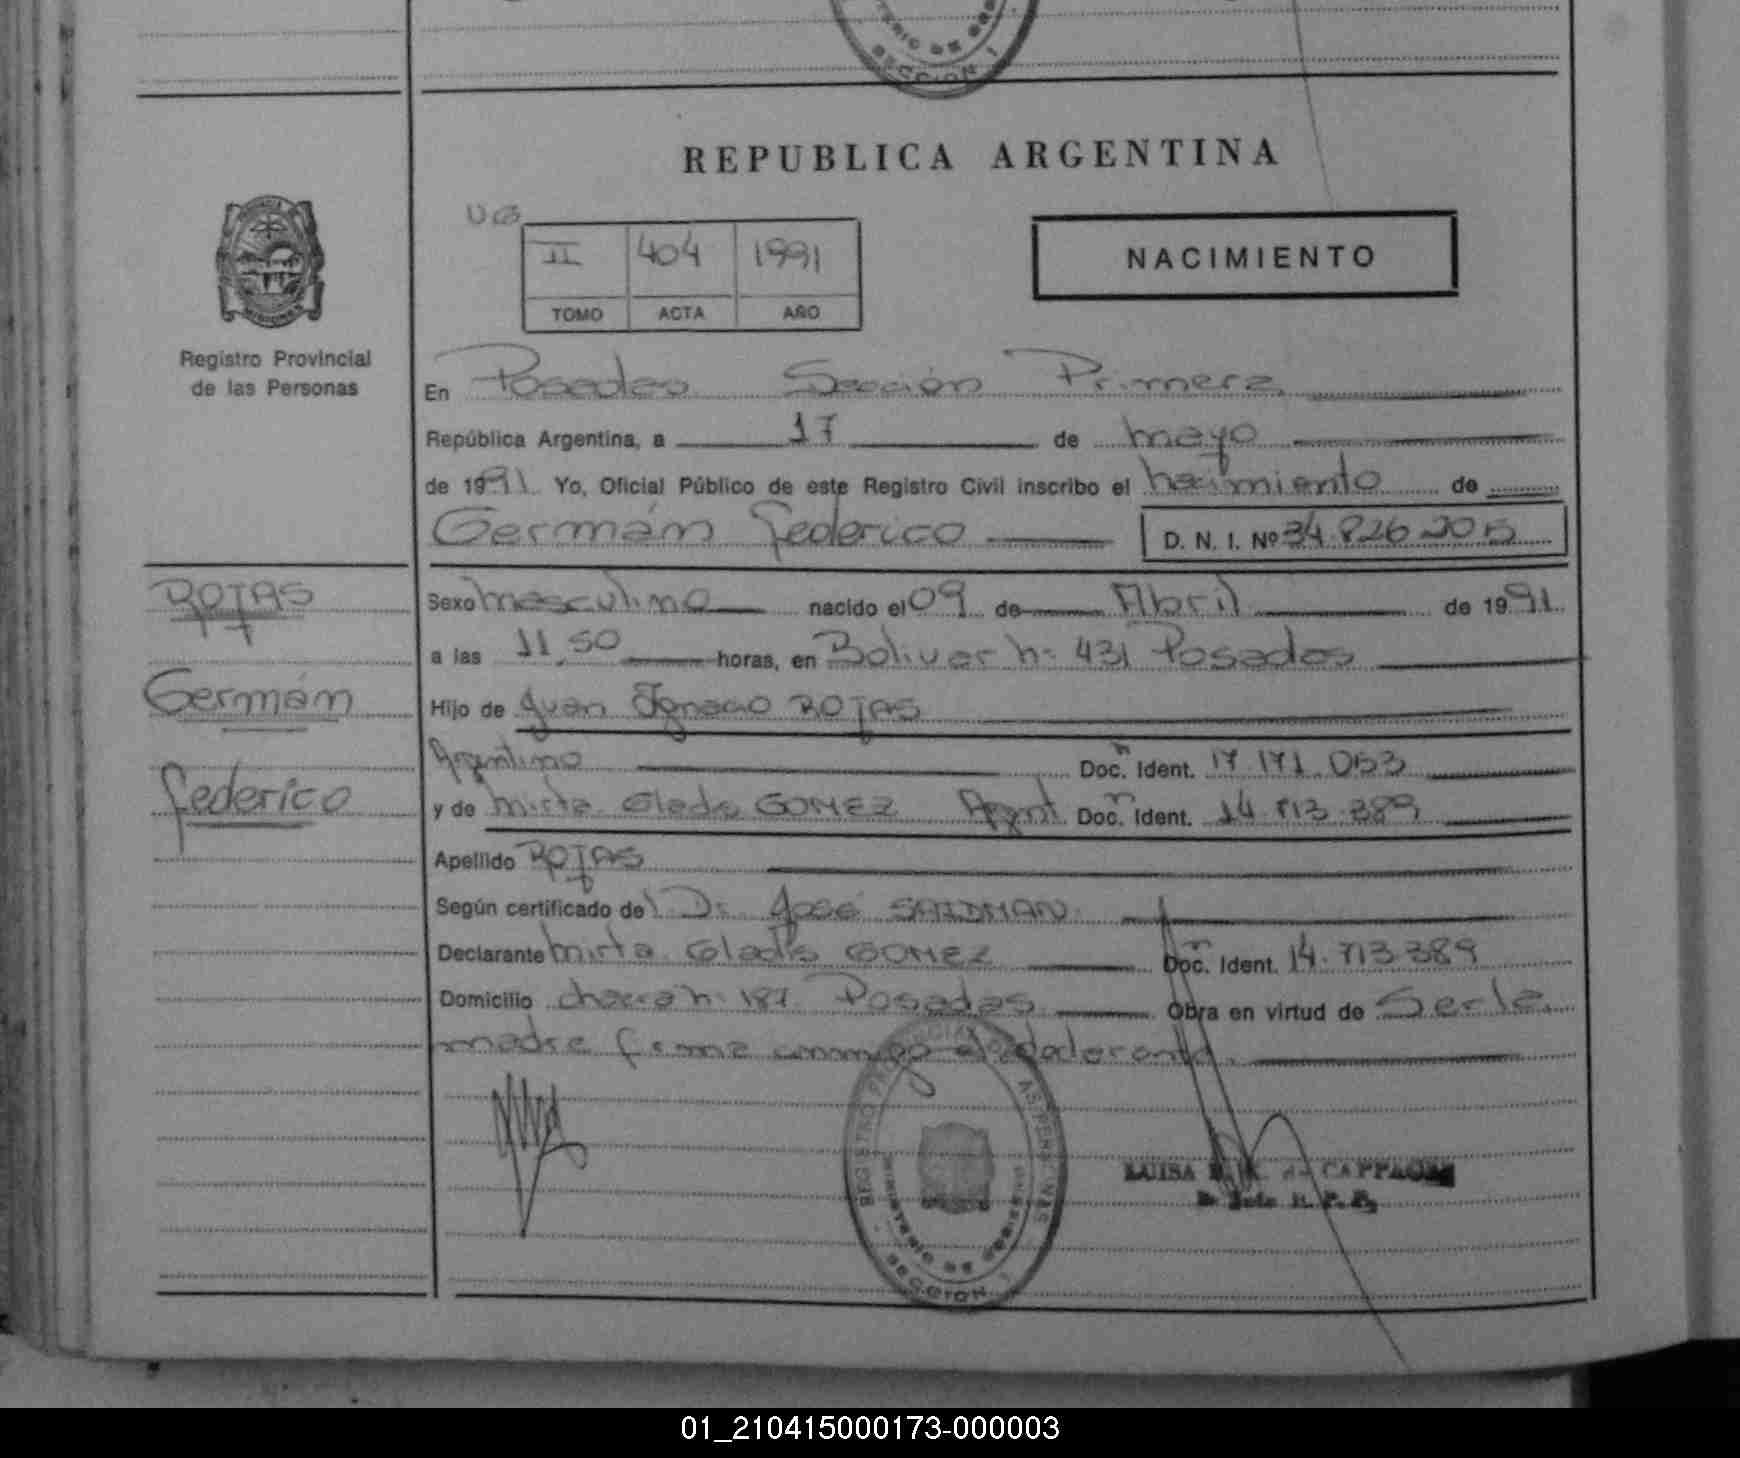 SECCION 1
REPUBLICA ARGENTINA
II 404 1991
TOMO ACTA AÑO
NACIMIENTO
Registro Provincial
de las Personas
En Posadas Sección Primera
República Argentina, a 17 de mayo
de 1991 Yo, Oficial Público de este Registro Civil inscribo el nacimiento de
Germán Federico D. N. I. Nº 34.826.205
ROJAS
Germán
Federico
Sexo masculino nacido el 09 de Abril de 1991
a las 11,50 horas, en Bolivar n: 431 Posadas
Hijo de Juan Ignacio ROJAS
Argentino Doc. Ident. 17.171.053
y de Mirta Gladis GOMEZ Argent Doc. Ident. 14.713.389
Apellido ROJAS
Según certificado del Dr José SAIDMAN
Declarante Mirta Gladis GOMEZ Doc. Ident. 14.713.389
Domicilio chacra n: 187 Posadas Obra en virtud de Ser la
madre firma conmigo
REGISTRO PROVINCIAL DE LAS PERSONAS
MINISTERIO DE GOBIERNO
SECCION 1
LUISA
01_210415000173-000003